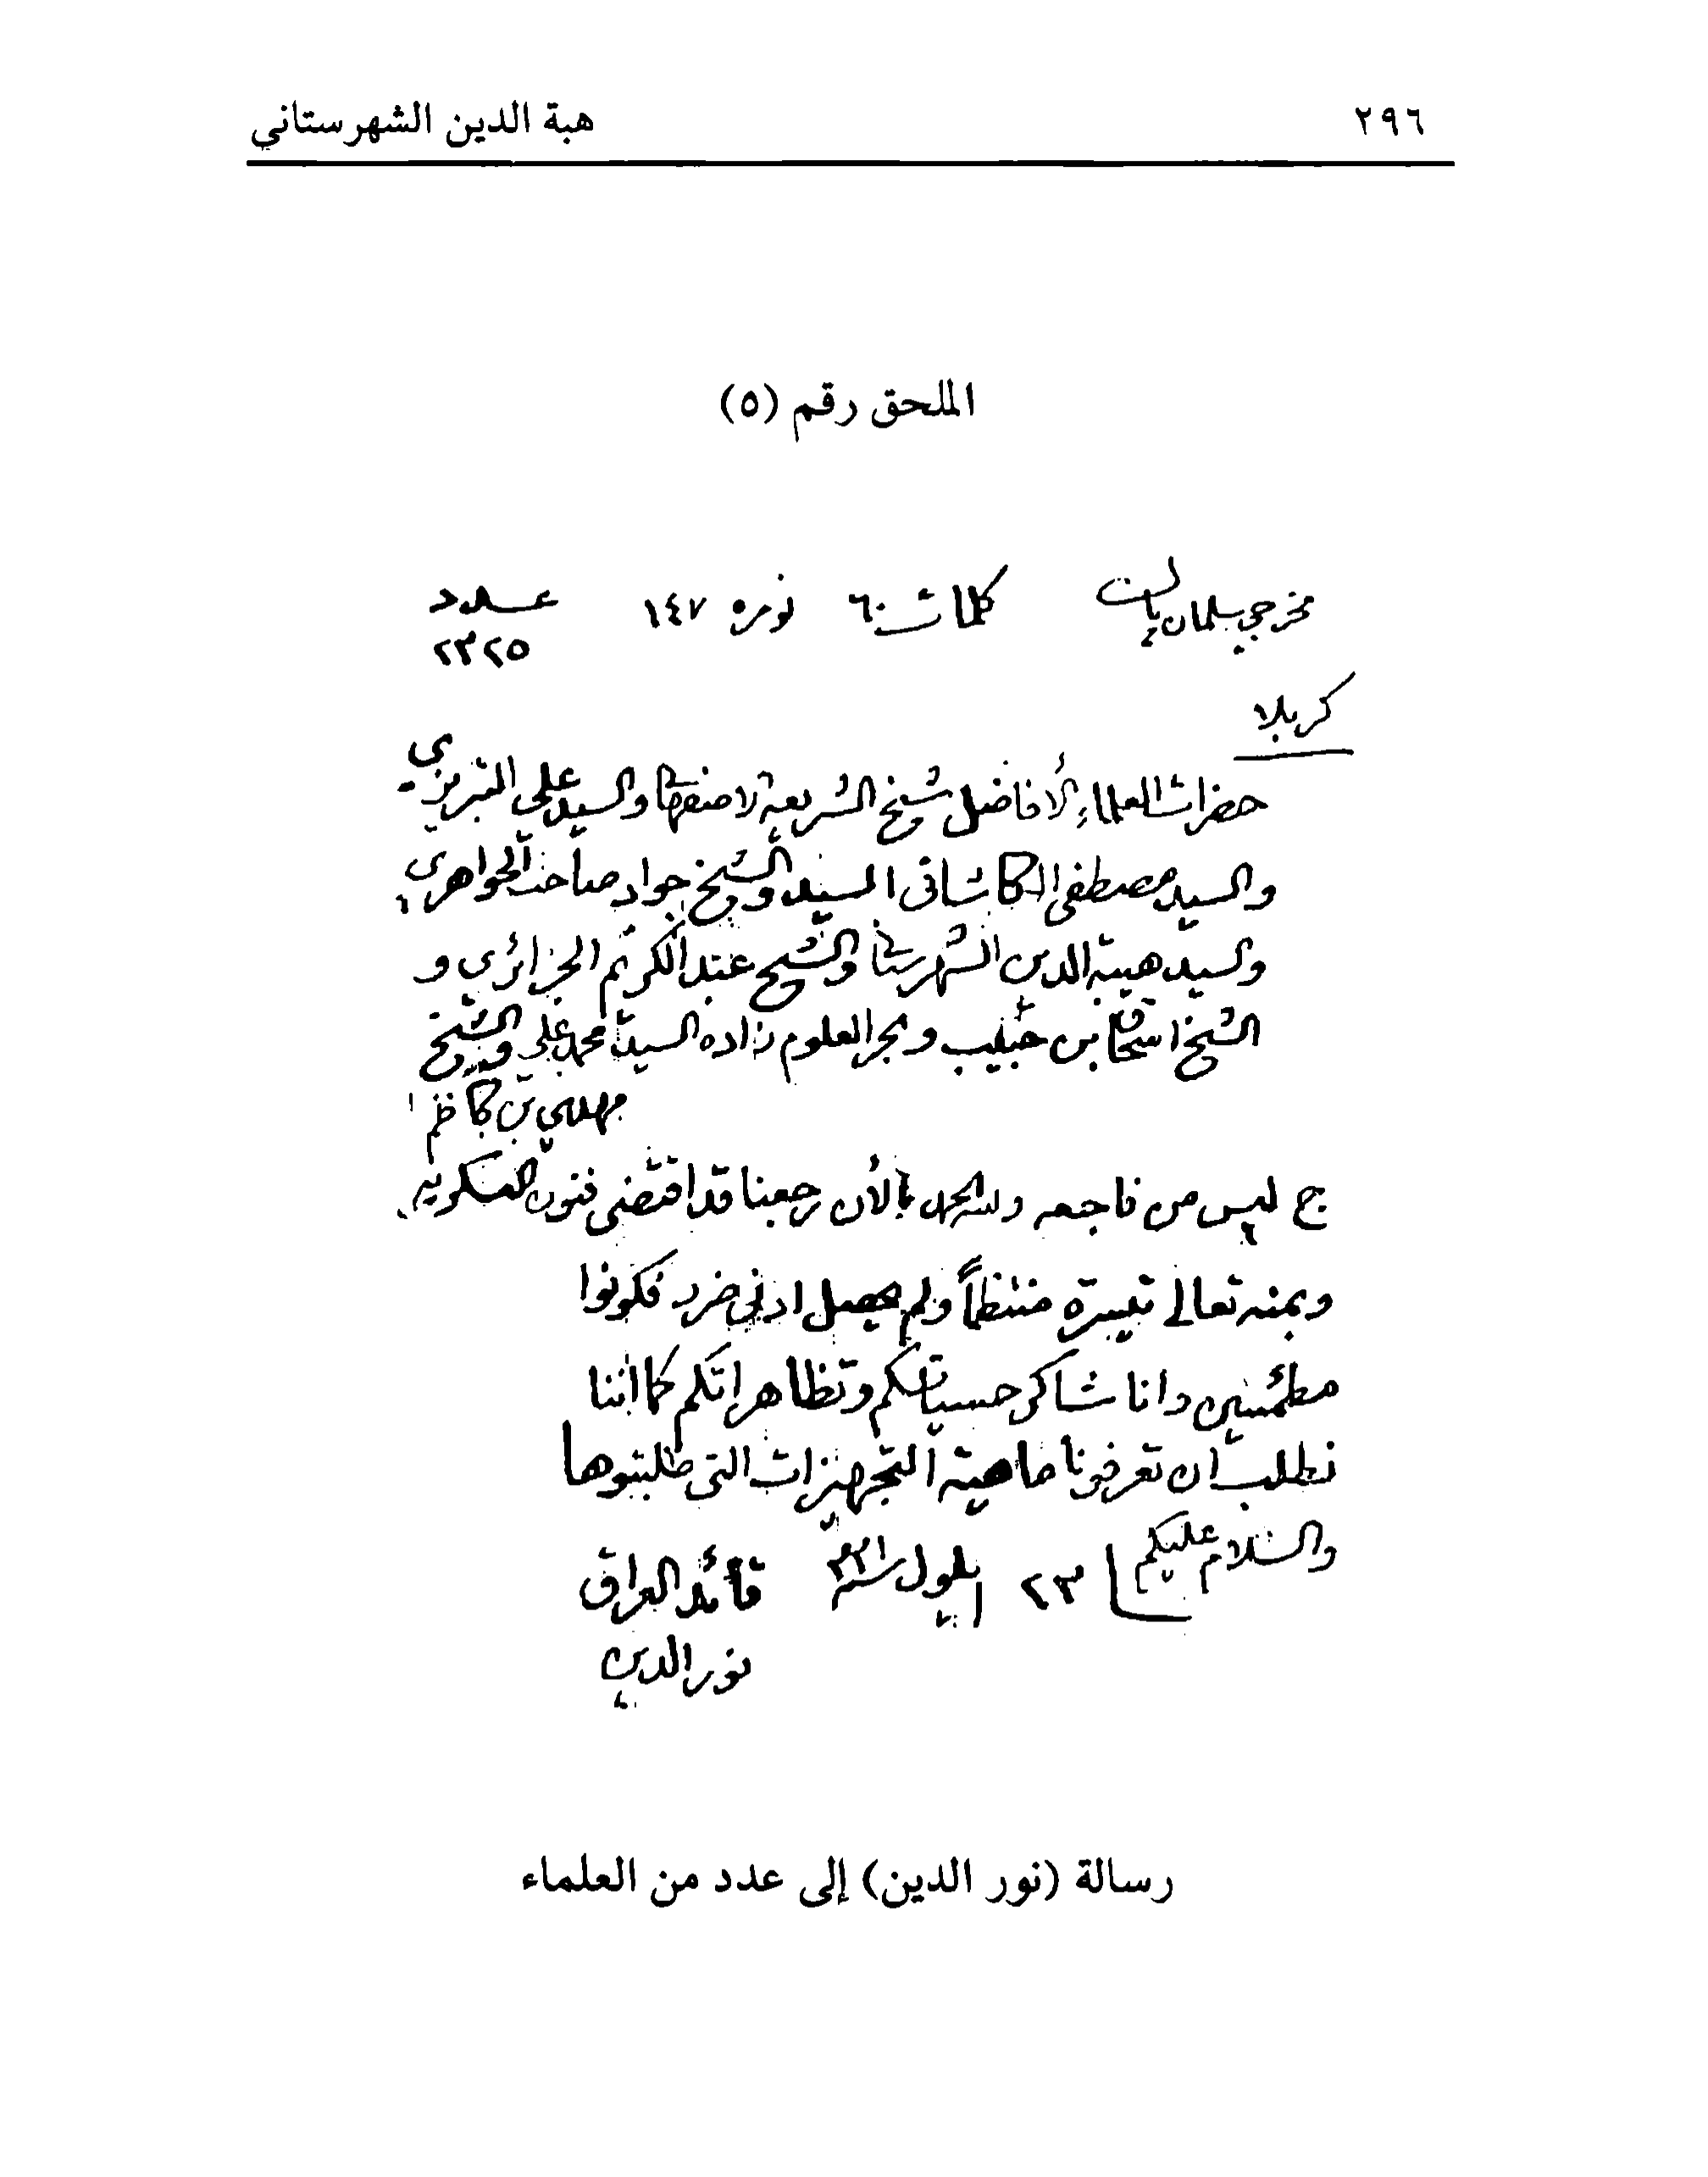 ٢٩٦ هبة الدين الشهرستاني
الملحق رقم (٥)
مخرجي سلمان پاك كلمات ٦٠ نومره ١٤٧ عدد
٢٣٢٥
كربلا
حضرات العلماء الأفاضل شيخ الشريعة الاصفهاني والسيد علي التبريزي
والسيد مصطفى الكاشاني السيد والشيخ جواد صاحب الجواهري
والسيد هبية الدين الشهرستاني والشيخ عبد الكريم الجزائري و
الشيخ اسحاق بن حبيب وبحر العلوم زاده السيد محمد علي والشيخ
مهدي بن كاظم
ج ليس من فاجعه ولله الحمد بالأن رجعنا قد اقتضى فنون العسكريه
وبمنه تعالى تيسره منتظماً ولم يحصل ادنى ضرر فكونوا
مطمئنين وانا شاكر حسياتكم وتظاهراتكم كما اننا
نطلب ان تعرفونا ماهية التجهيزات التي طلبتوها
والسلام عليكم ٢٣ ايلول سنه ٣٣١ قائد العراق
نور الدين
رسالة (نور الدين) إلى عدد من العلماء